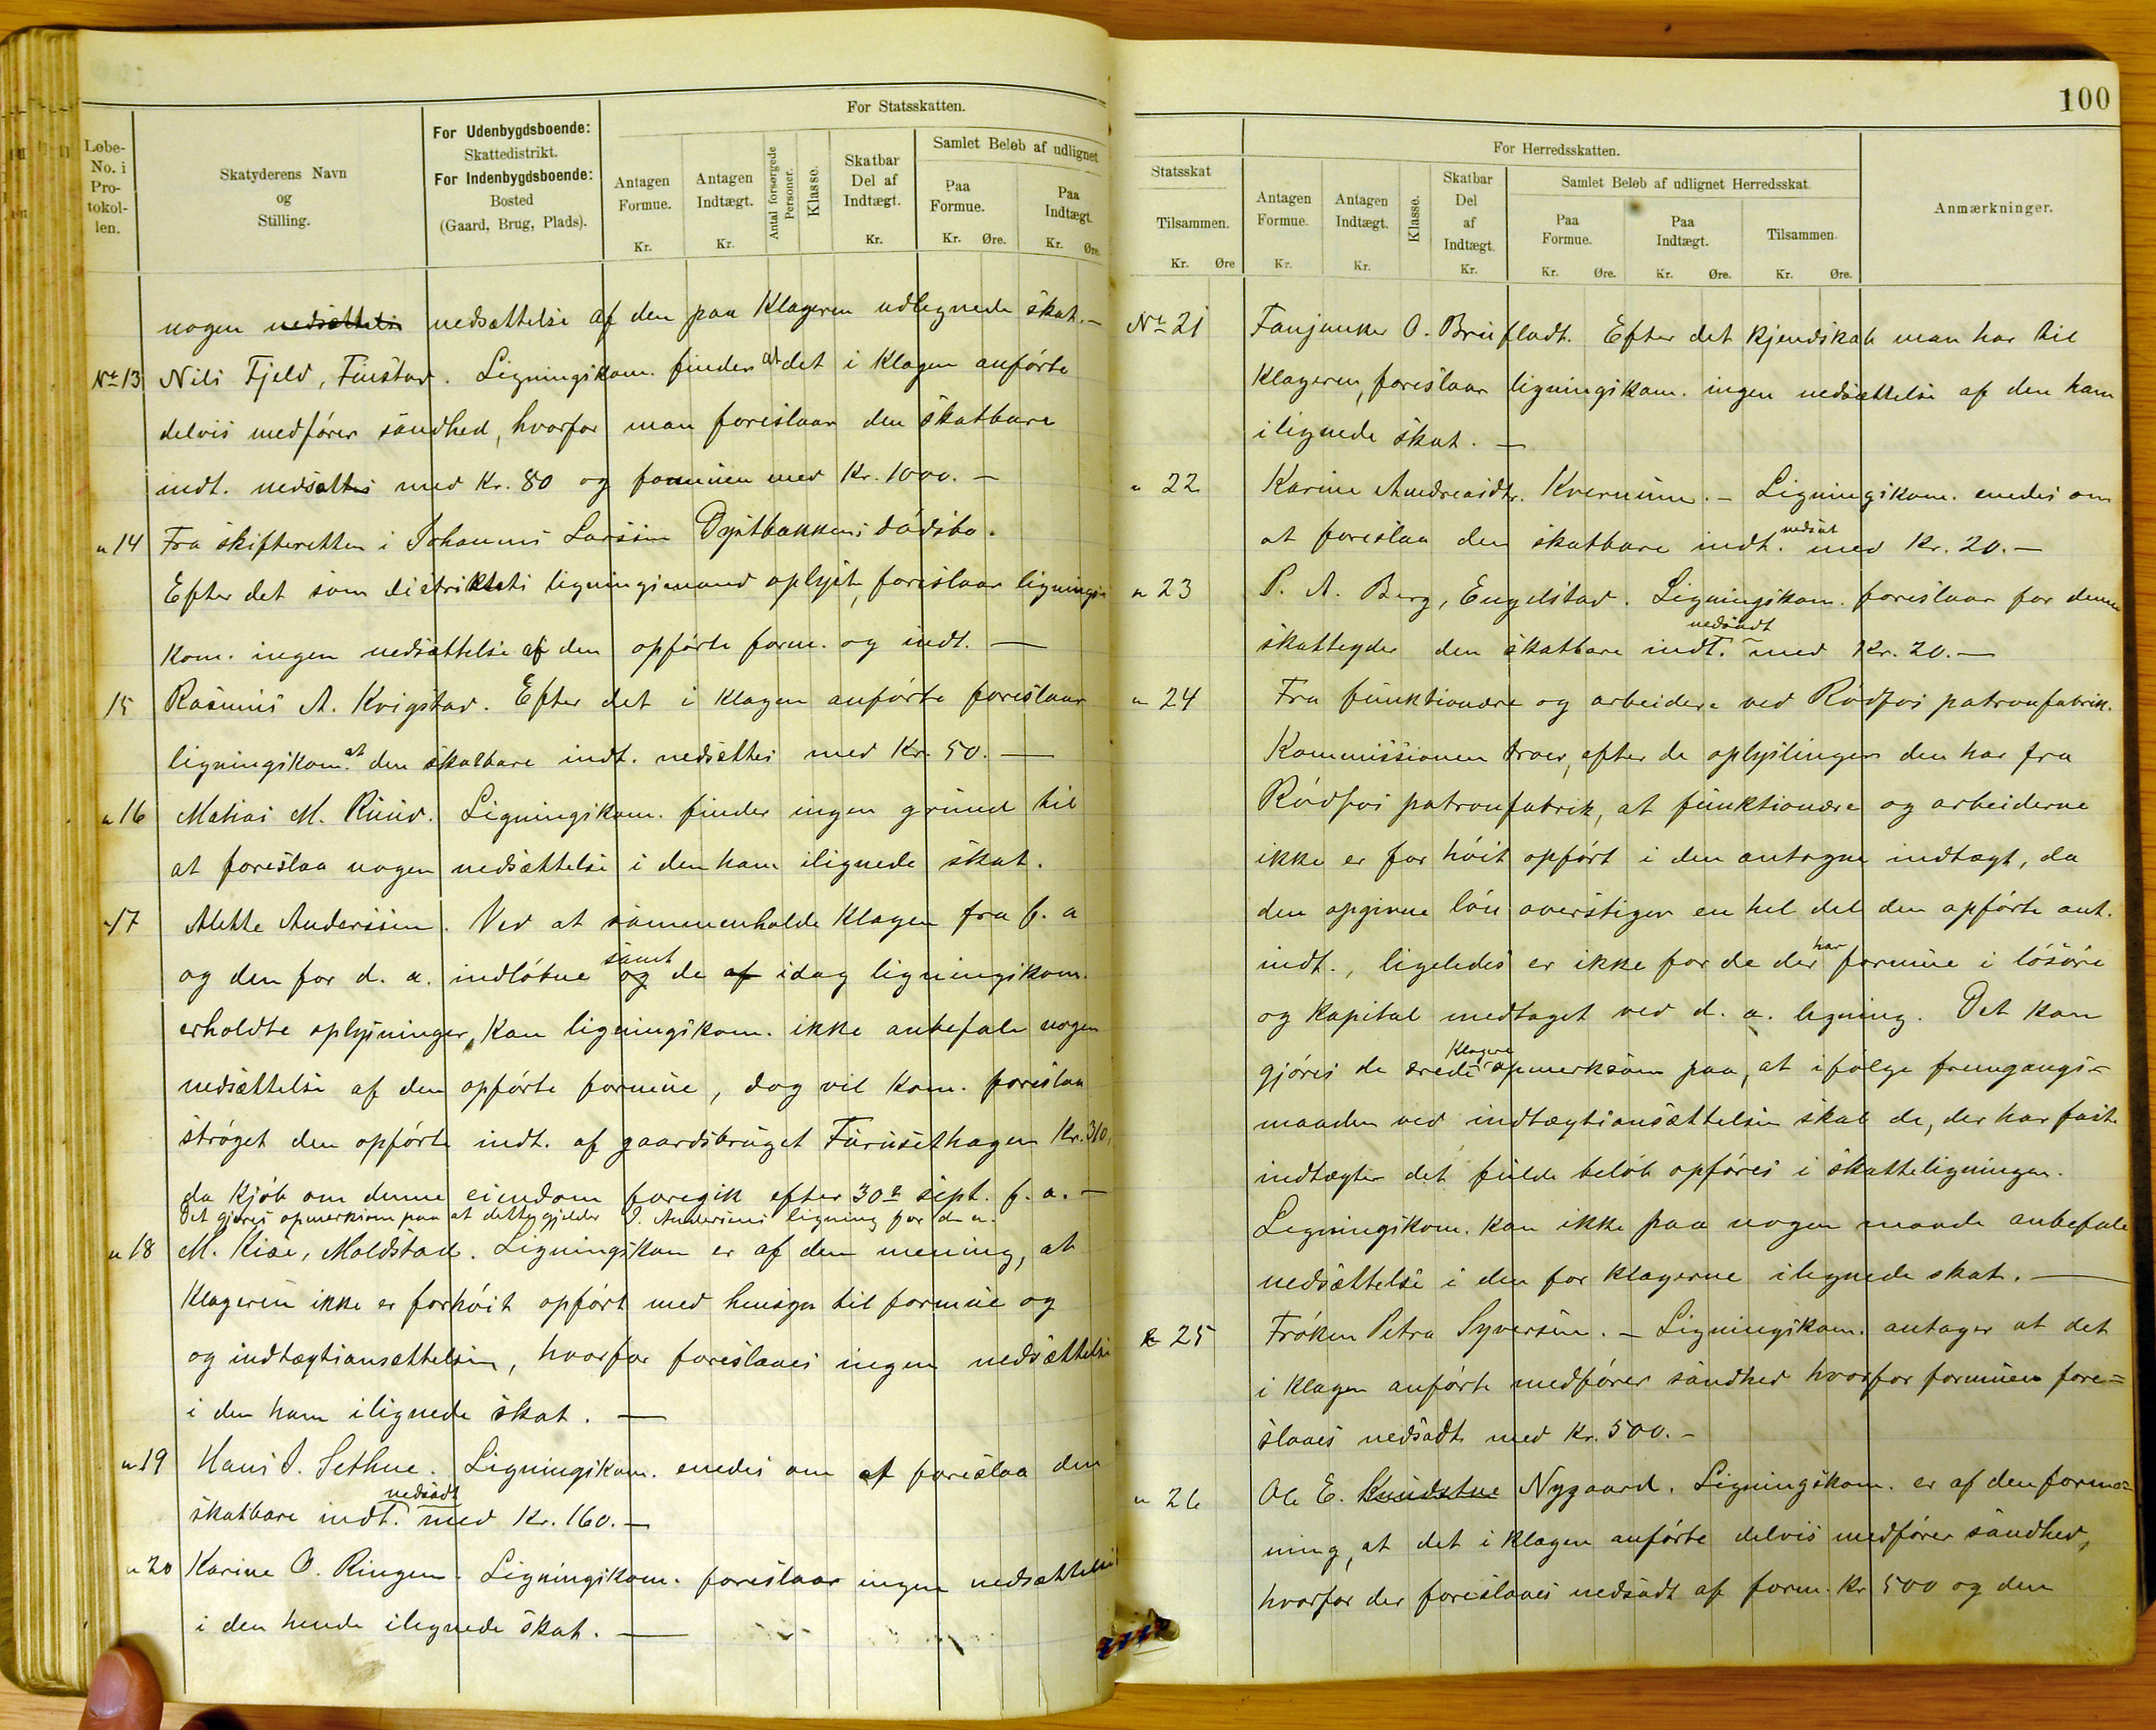 100
Løbe-No. i Protokollen.
Skatyderens Navn og Stilling.
For Udenbygdsboende: Skattedistrikt. For Indenbygdsboende: Bosted (Gaard, Brug, Plads).
For Statsskatten.
Antagen Formue. Kr.
Antagen Indtægt. Kr.
Antal forsørgede Personer.
Klasse.
Skatbar Del af Indtægt. Kr.
Samlet Beløb af udlignet
Paa Formue. Kr. Øre.
Paa Indtægt. Kr. Øre.
nogen nedsættelse nedsættelse af den paa Klageren udlignede skat. –
No 13 Nils Fjeld, Finstad. Ligningskom. finder at det i Klagen anførte
delvis medfører sandhed, hvorfor man foreslaar den skatbare
indt. nedsættes med Kr. 80 og formuen med Kr. 1000. –
" 14 Fra skifteretten i Johannes Larssen Dystbakkens dødsbo.
Efter det som distriktets ligningsmand oplyst, foreslaar lignings
Kom. ingen nedsættelse af den opførte form. og indt. –
15 Rasmus A. Kvigstad. Efter det i klagen anførte foreslaar
ligningskom. at den skatbare indt. nedsættes med Kr. 50. –
" 16 Matias M. Ruud. Ligningskom. finder ingen grund til
at foreslaa nogen nedsættelse i den ham ilignede skat.
" 17 Mette Anderssen. Ved at sammenholde Klagen fra f. a
og den for d. a. indløbne og samt de af idag ligningskom.
erholdte oplysninger, Kan ligningskom. ikke anbefale nogen
nedsættelse af den opførte formue, dog vil Kom. foreslaa
strøget den opførte indt. af gaardsbruget Furusethagen Kr. 310,
da Kjøb om denne eiendom foregik efter 30te sept. f. a. –
Det gjøres opmerksom paa at dette gjelder J. Andersens ligning for d. a.
" 18 M. Kise, Moldstad. Ligningskom er af den mening, at
Klageren ikke er forhøit opført med hensyn til formue og
og indtægtsansættelsen, hvorfor foreslaaes ingen nedsættelse
i den ham ilignede skat. –
" 19 Hans J. Sethne. Ligningskom. enedes om at foreslaa den
skatbare indt. nedsadt med Kr. 160. –
" 20 Karine O. Ringen. Ligningskom. foreslaar ingen nedsættelse
i den hende ilignede skat. –
Statsskat Tilsammen. Kr. Øre
For Herredsskatten.
Antagen Formue. Kr.
Antagen Indtægt. Kr.
Klasse.
Skatbar Del af Indtægt. Kr.
Samlet Beløb af udlignet Herredsskat.
Paa Formue. Kr. Øre.
Paa Indtægt. Kr. Øre.
Tilsammen. Kr. Øre.
Anmærkninger.
No 21 Fanjunker O. Breifladt. Efter det Kjendskab man har til
Klageren, foreslaar ligningskom. ingen nedsættelse af den ham
ilignede skat. –
" 22 Karine Andreasdtr. Kvernum. – Ligningskom. enedes om
at foreslaa den skatbare indt. nedsat med Kr. 20. –
" 23 P. A. Berg, Engelstad. Ligningskom. foreslaar for denne
skatteyder den skatbare indt. nedsadt med Kr. 20. –
" 24 Fra funktionære og arbeidere ved Rødfos patronfabrik.
Kommissionen troer, efter de oplyslinger den har fra
Rødfos patronfabrik, at funktionære og arbeiderne
ikke er for høit opført i den antagne indtægt, da
den opgivne løn overstiger en hel del den opførte ant.
indt., ligeledes er ikke for de der har formue i løsøre
og Kapital medtaget ved d. a. ligning. Det kan
gjøres de ærede Klagere opmerksom paa, at ifølge fremgangs-
maaden ved indtægtsansættelsen skal de, der har faste
indtægter det fulde beløb opføres i skatteligningen.
Ligningskom. kan ikke paa nogen maade anbefale
nedsættelse i den for klagerne ilignede skat. –
" 25 Frøken Petra Syversen. – Ligningskom. antager at det
i Klagen anførte medfører sandhed hvorfor formuen fore=
slaaes nedsadt med Kr. 500. –
" 26 Ole E. Nygaard. Ligningskom. er af den forme=
ning, at det i klagen anførte delvis medfører sandhed,
hvorfor der foreslaaes nedsadt af form. Kr 500 og den